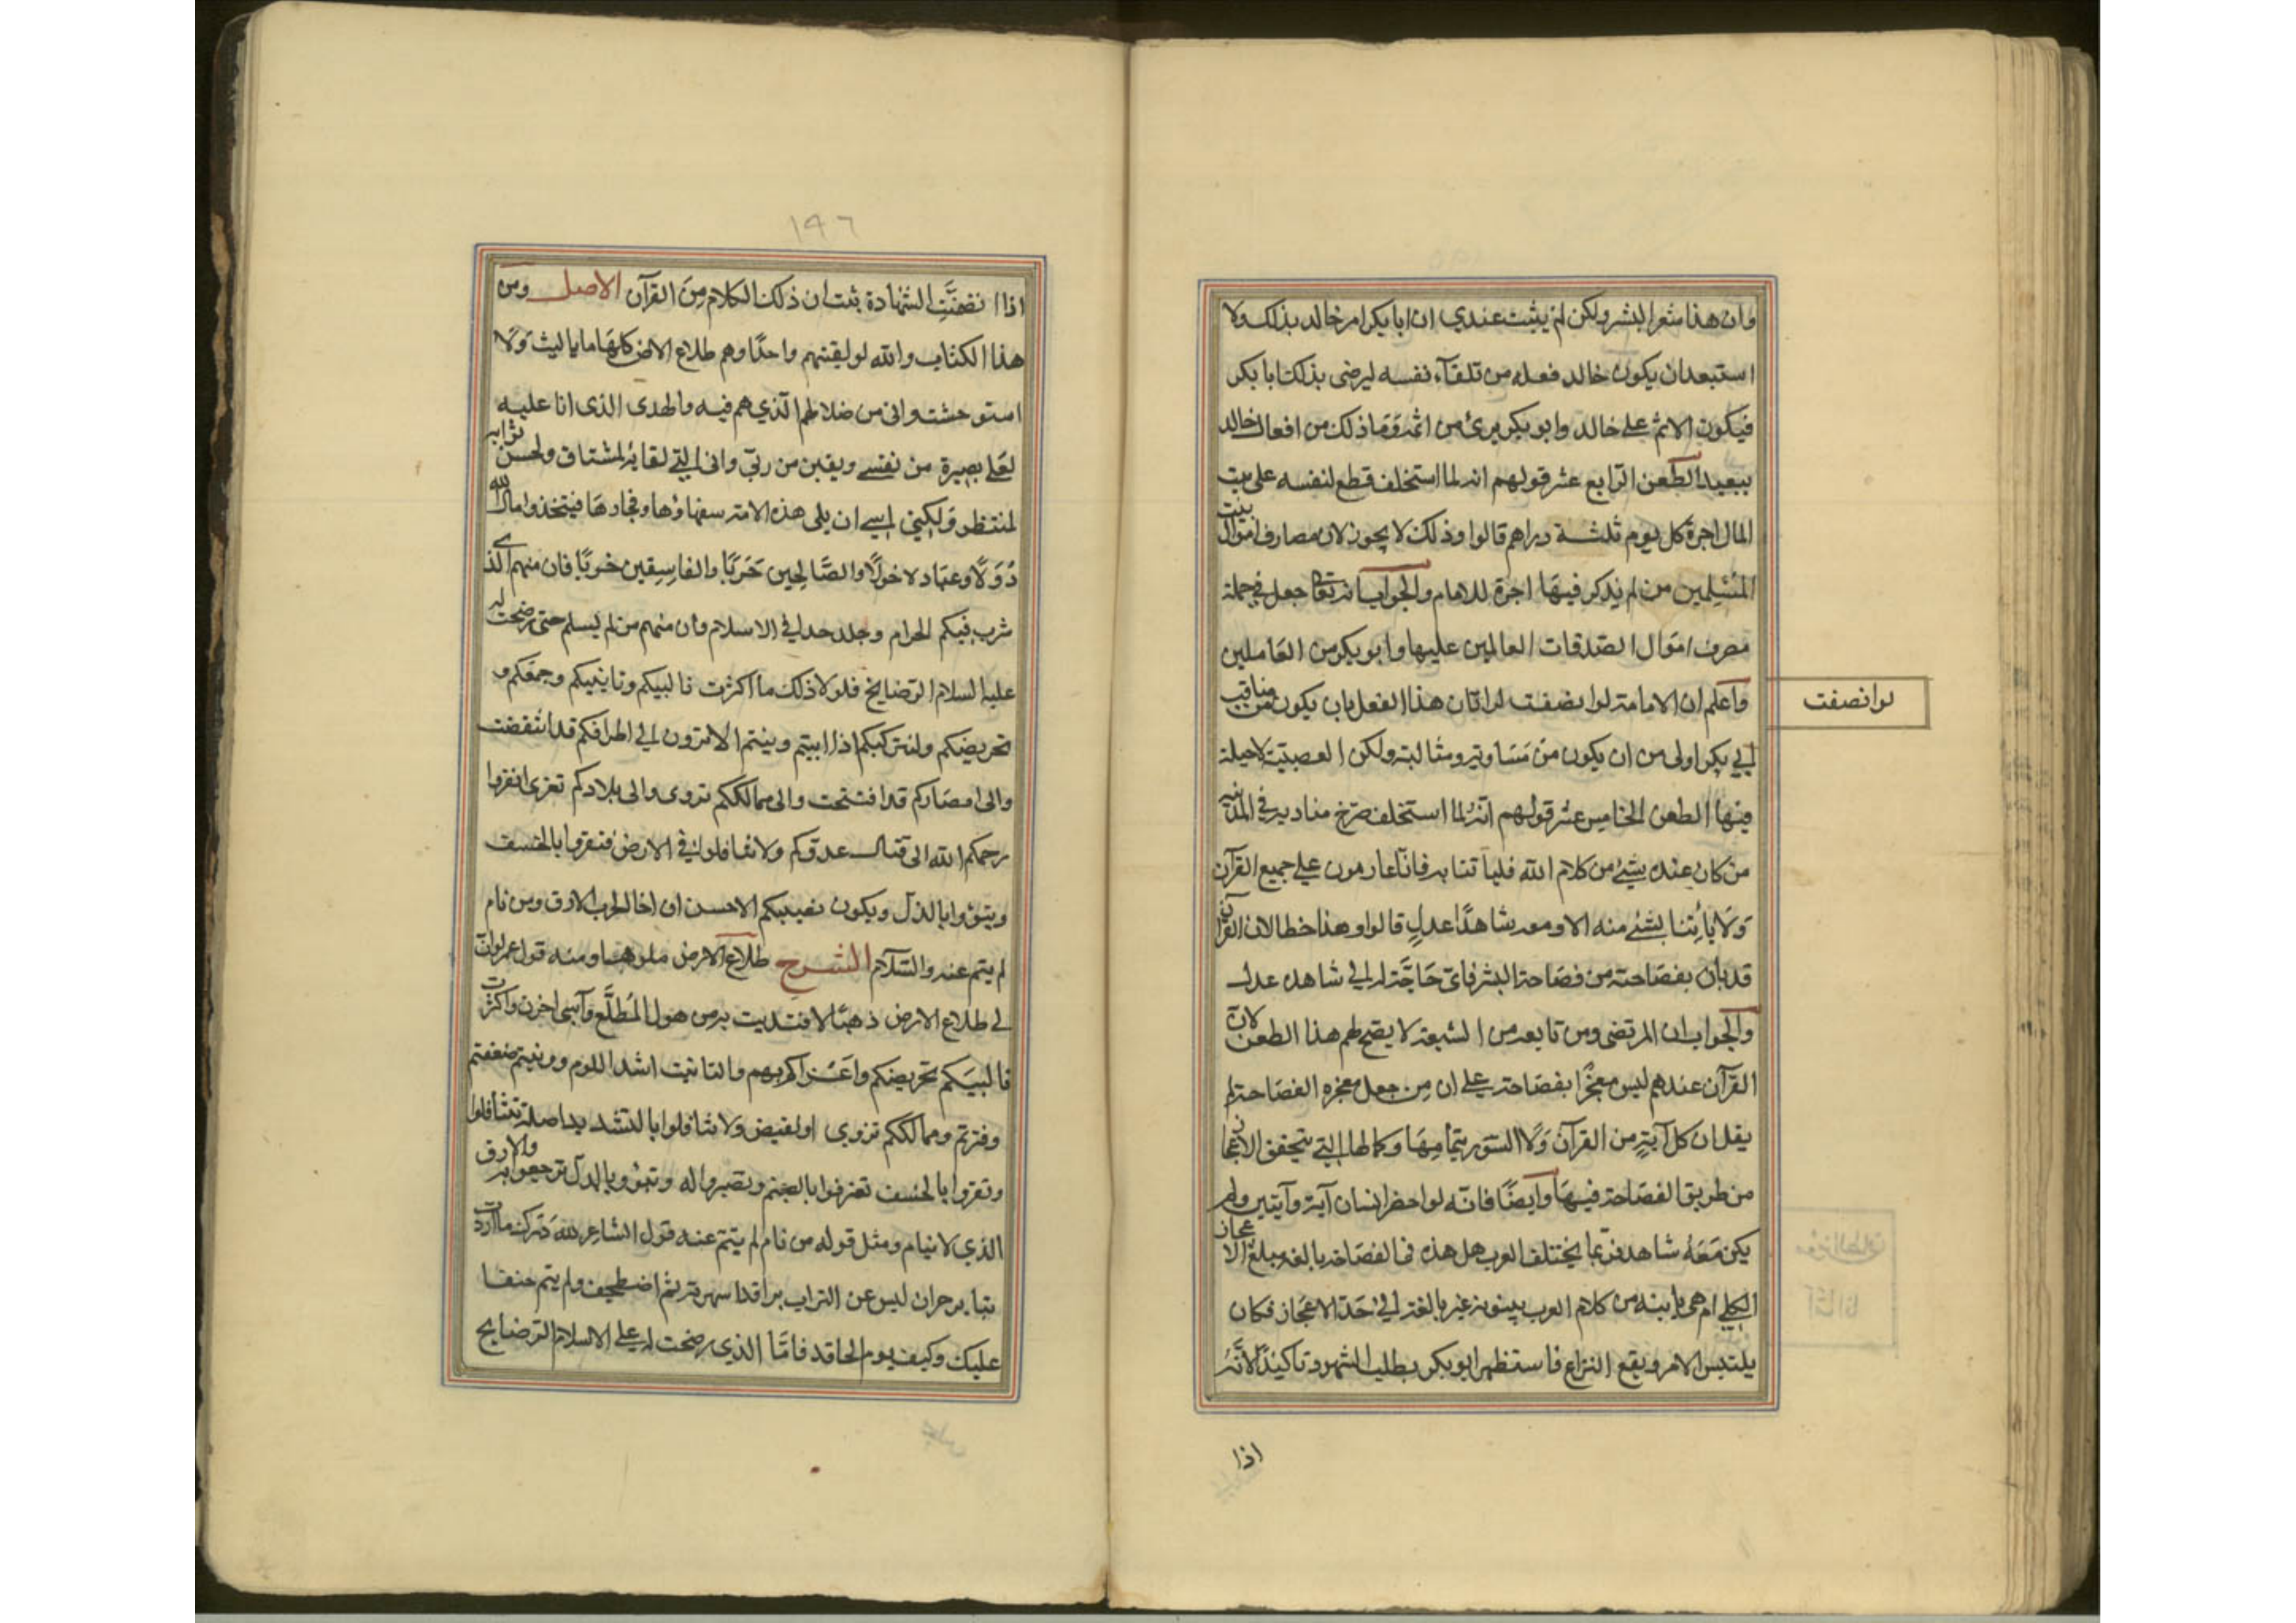 وان هذا شعر البشر ولكن لم يثبت عندي ان ابا بكر امر خالد بذلك ولا
استبعد ان يكون خالد فعله من تلقآء نفسه ليرضى بذلك ابا بكر
فيكون الاثم على خالد وابو بكر برئ من اثمه وما ذلك من افعال خالد
ببعيد الطعن الرابع عشر قولهم انه لما استخلف قطع لنفسه على بيت
المال اجرة كل يوم ثلثة دراهم قالوا وذلك لا يجوز لان مصارف اموال بيت
المسلمين من لم يذكر فيها اجرة للامام والجواب انه تعا جعل في جملة
مصرف اموال الصدقات العالمين عليها وابو بكر من العاملين
واعلم ان الامامية لو انصفت لرات ان هذا الفعل بان يكون من مناقب
لوانصفت
ابي بكر اولى من ان يكون من مساويه ومثالبه ولكن العصبية لاحيلة
فيها الطعن الخامس عشر قولهم انه لما استخلف صرخ مناديه في المدينة
من كان عنده شئ من كلام الله فليأتنا به فانا عازمون على جميع القرآن
ولا يأتنا بشئ منه الا ومعه شاهدا عدل قالوا وهذا خطا لان القرآن
قد بان بفصاحته من فصاحة البشر فاى حاجة له الى شاهد عدل
والجواب ان المرتضى ومن تابعه من الشيعة لا يصح لهم هذا الطعن لان
القرآن عندهم ليس معجزا بفصاحته على ان من جعل معجزه الفصاحة لم
يقل ان كل آية من القرآن ولا السور بتمامها وكمالها التي يتحقق الاعجاز
من طريق الفصاحة فيها وايضا فانه لو احضر انسان آية وآيتين ولم
يكن معه شاهد فربما يختلف العرب هل هذه فى الفصاحة بالغة مبلغ الاعجاز
الكلي ام هي بابنه من كلام العرب بينونة غير بالغة الى حد الاعجاز فكان
يلتبس الامر ويقع النزاع فاستظهر ابو بكر بطلب الشهود تاكيدا لانه
اذا
١٩٦
اذا انضمت الشهادة ثبت ان ذلك الكلام من القرآن الاصل ومن
هذا الكتاب والله لو لقيتهم واحدا وهم طلاع الارض كلها ما باليت ولا
استوحشت وانى من ضلالهم الذي هم فيه والهدى الذى انا عليه
لعلى بصيرة من نفسي ويقين من ربي وانى الي لقائه لمشتاق ولحسن ثوابه
لمنتظر ولكنني اسي ان يلى هذه الامة سفهاؤها وفجارها فيتخذوا مال الله
دولا وعباده خولا والصالحين حربا والفاسقين حزبا فان منهم الذي
شرب فيكم الحرام وجلد حدا في الاسلام وان منهم من لم يسلم حتى رضخت له
عليه السلام الرضايخ فلولا ذلك ما اكثرت تاليبكم وتانيبكم وجمعكم و
تحريضكم ولتركتكم اذا ابيتم وونيتم الا ترون الى اطرافكم قد انتقضت
والى امصاركم قد افتتحت والى ممالككم تزوى والى بلادكم تغزى انفروا
رحمكم الله الى قتال عدوكم ولا تثاقلوا فى الارض فتقروا بالخسف
وتبوؤوا بالذل ويكون نصيبكم الاخس ان اخا الحرب الارق ومن نام
لم ينم عنه والسلام الشرح طلاع الارض ملوها ومنه قول عمر لو ان
لي طلاع الارض ذهبا لافتديت به من هول المطلع وآسى احزن واكثرت
تاليبكم تحريضكم واغراكم بهم والتانيب اشد اللوم وونيتم ضعفتم
وفترتم وممالككم تزوى اولقبض ولا تثاقلوا بالتشديد اصله تتثاقلوا
وتقروا بالخسف تعترفوا بالضيم وتصيروا له وتبوؤ وبالذل ترجعوا به والارق
الذي لا ينام ومثل قوله من نام لم ينم عنه قول الشاعر لله درك ما اردت
بثاير حران ليس عن التراب براقد اسهرته ثم اضطجعت ولم ينم حنقا
عليك وكيف يوم الحاقد فاما الذي رضخت له على الاسلام الرضايخ